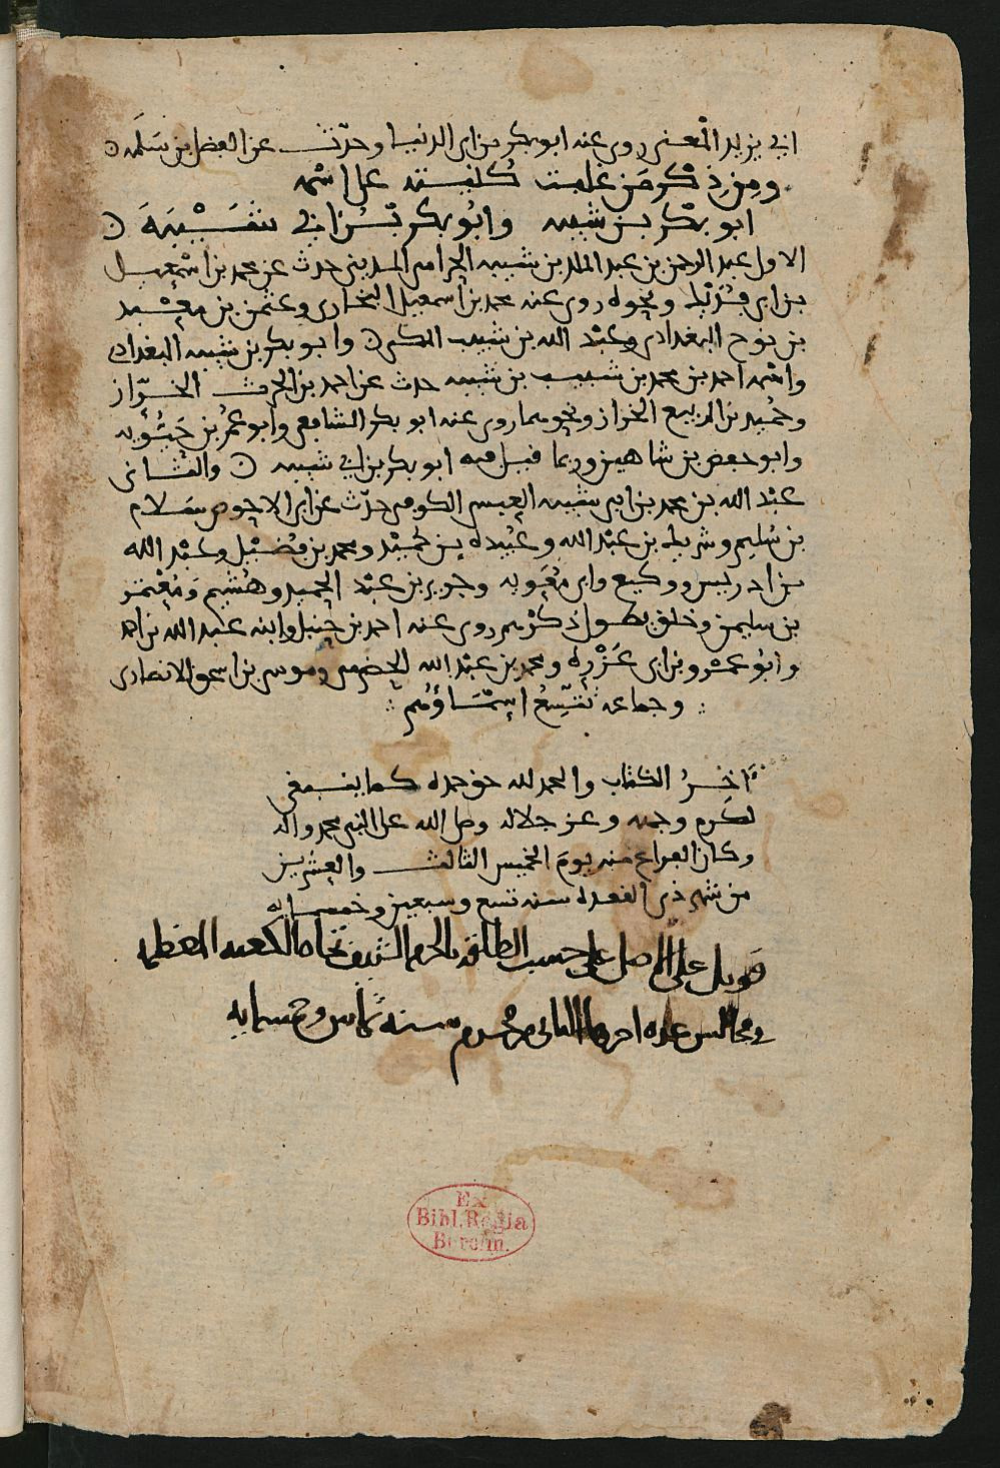 ابي يزيد المعنى روى عنه ابو بكر بن ابي الدنيا وحدث عن الفضل بن سلمه
ومن ذكر من غلبت كنيته على اسمه
ابو بكر بن شيبه وابو بكر بن ابي شيبة
الاول عبد الرحمن بن عبد الملك بن شيبه الحزامي المديني حدث عن محمد بن اسمعيل
بن ابي فديك ونحوه روى عنه محمد بن اسمعيل البخاري وعثمن بن
بن نوح البغدادي وعبد الله بن شبيب المكي وابو بكر بن شيبه البغدادي
واسمه احمد بن محمد بن شبيب بن شيبه حدث عن احمد بن الحرث الخزاز
وحميد بن الربيع الخزاز ونحوهما روى عنه ابو بكر الشافعي وابو عمر بن حيويه
وابو حفص بن شاهين وربما قيل فيه ابو بكر بن ابي شيبه والثاني
عبد الله بن محمد بن ابي شيبه العبسي الكوفي حدث عن ابي الاحوص سلام
بن سليم وشريك بن عبد الله وعبيدة بن حميد ومحمد بن فضيل وعبد الله
بن ادريس ووكيع وابي معويه وجرير بن عبد الحميد وهشيم ومعتمر
بن سليمن وخلق يطول ذكرهم روى عنه احمد بن حنبل وابنه عبد الله بن احمد
وابو عمرو بن ابي غرزة ومحمد بن عبد الله الحضرمي وموسى بن اسحق الانصاري
وجماعه تتسع اسماؤهم
آخر الكتاب والحمد لله حق حمده كما ينبغي
لكرم وجهه وعز جلاله وصلى الله على النبي محمد واله
وكان الفراغ منه يوم الخميس الثالث والعشرين
من شهر ذي القعده سنه تسع وسبعين وخمسمايه
قوبل على الاصل على حسب الطاقه بالحرم الشريف تجاه الكعبه المعظمه
في مجالس عده اخرها الثاني من محرم سنة ثمانين وخمسمايه
Ex
Bibl. Regia
Berolin.